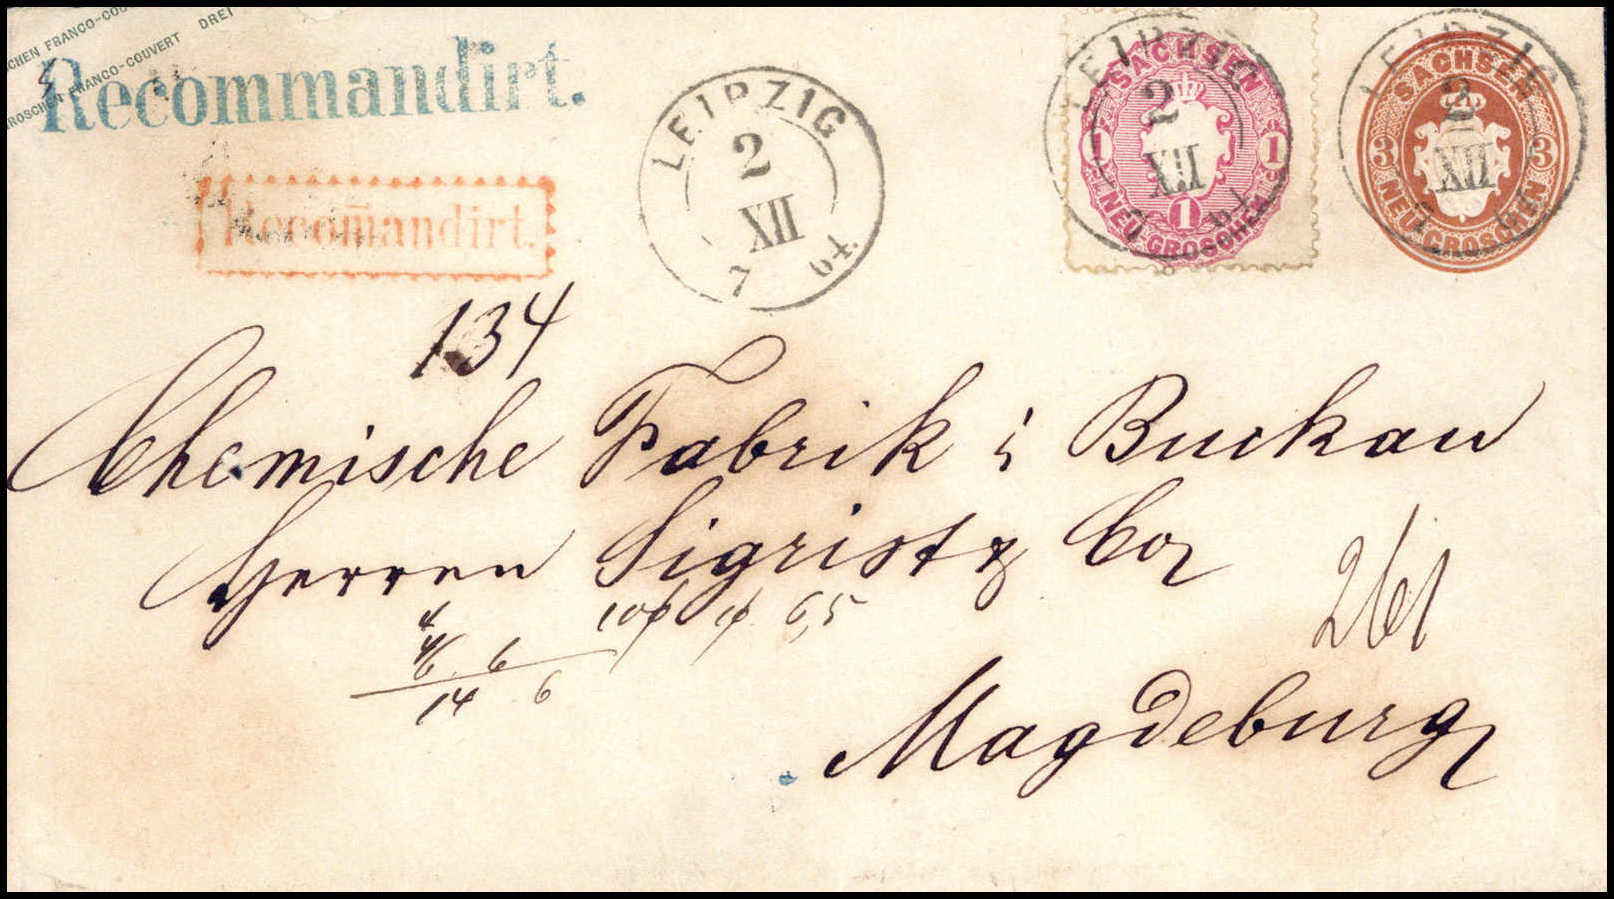 CHEN FRANCO-COUVERT DREI
GROSCHEN FRANCO-COUVERT DREI
Recommandirt.
Recom̄andirt.
LEIPZIG
2
XII
7 64.
LEIPZIG
2
XII
7 64.
SACHSEN
1 1
1
NEU-GROSCHEN
LEIPZIG
2
XII
7 64.
SACHSEN
3 3
NEU GROSCHEN
134
Chemische Fabrik i Buckau
Herren Sigrist & Co
261
6
14 6
6,5
Magdeburg